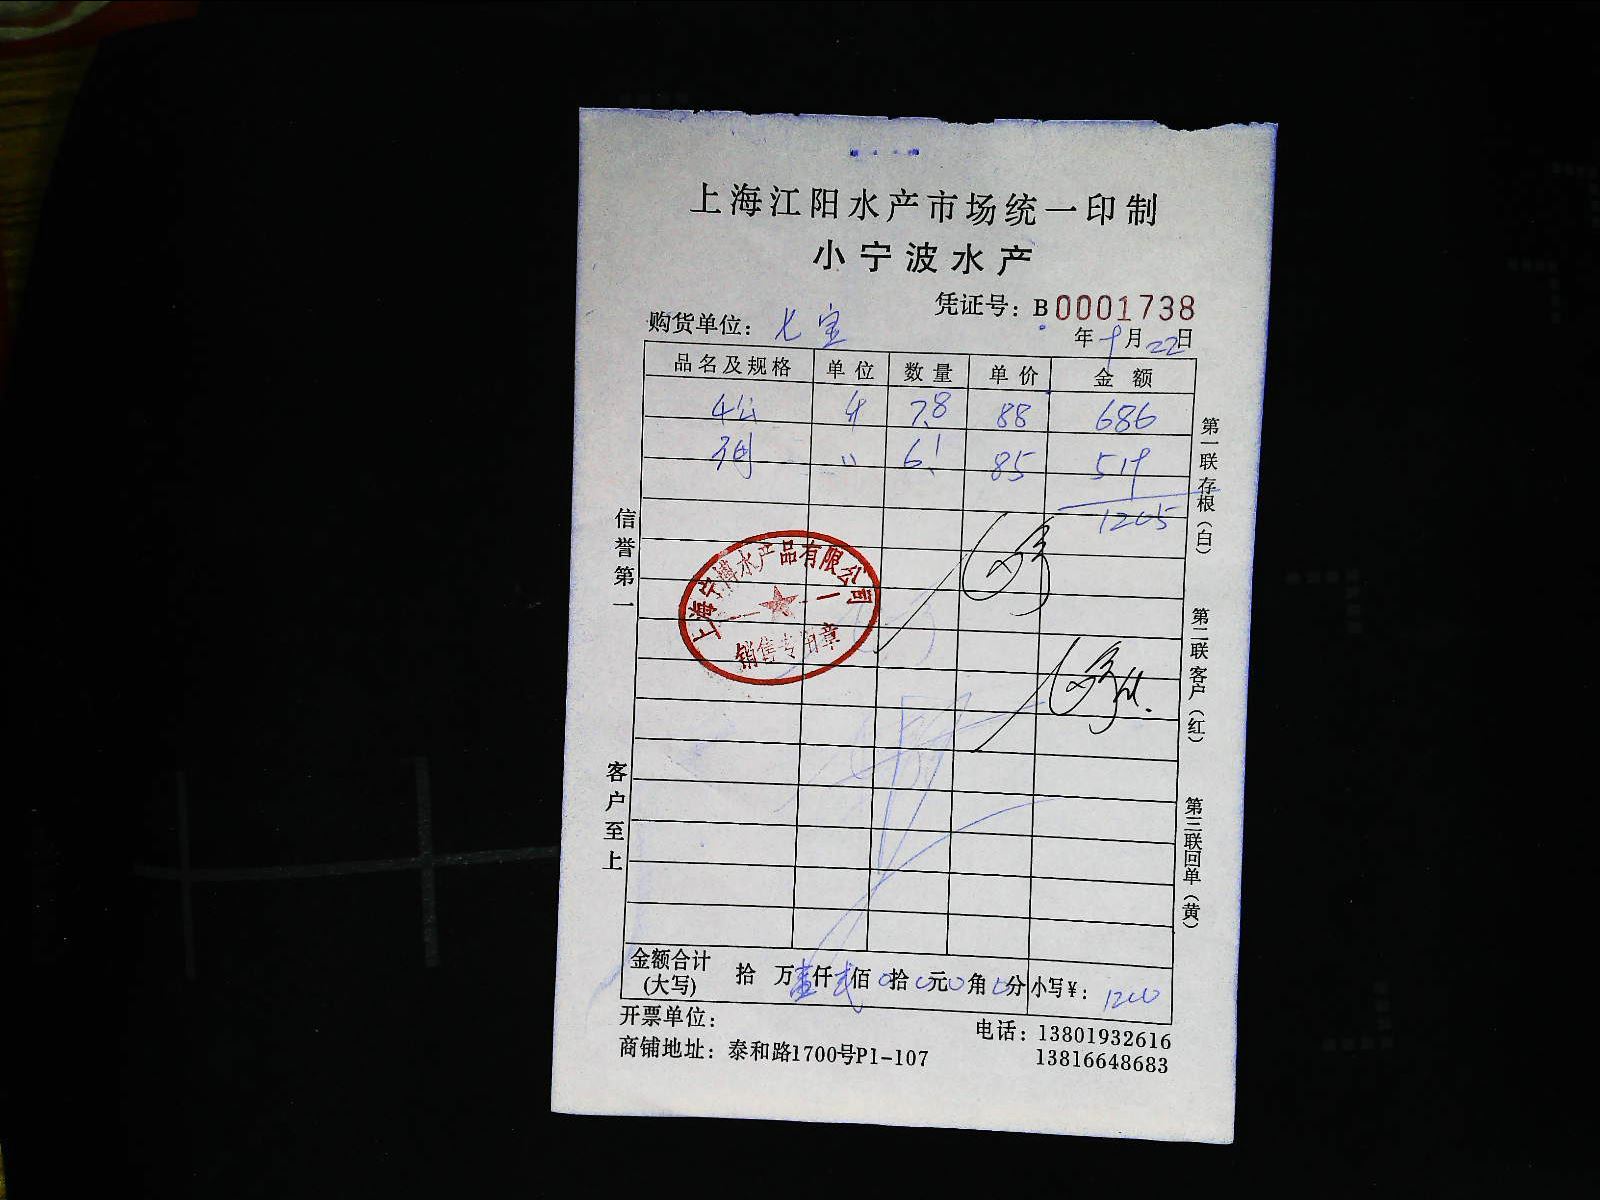 上海江阳水产市场统一印制
小宁波水产
凭证号：B0001738
购货单位：七宝
年 9月 22日
品名及规格 单位 数量 单价 金额
4公 斤 7.8 88 686
3母 〃 6.1 85 519
1205
上海宁博水产品有限公司
销售专用章
信誉第一
客户至上
第一联存根（白）
第二联客户（红）
第三联回单（黄）
金额合计（大写） 拾 万壹仟贰佰0拾0元0角0分 小写¥：1200
开票单位：
电话：13801932616
商铺地址：泰和路1700号P1-107
13816648683